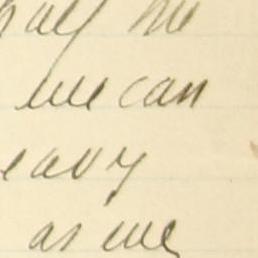 half the
we can
eavy
as we